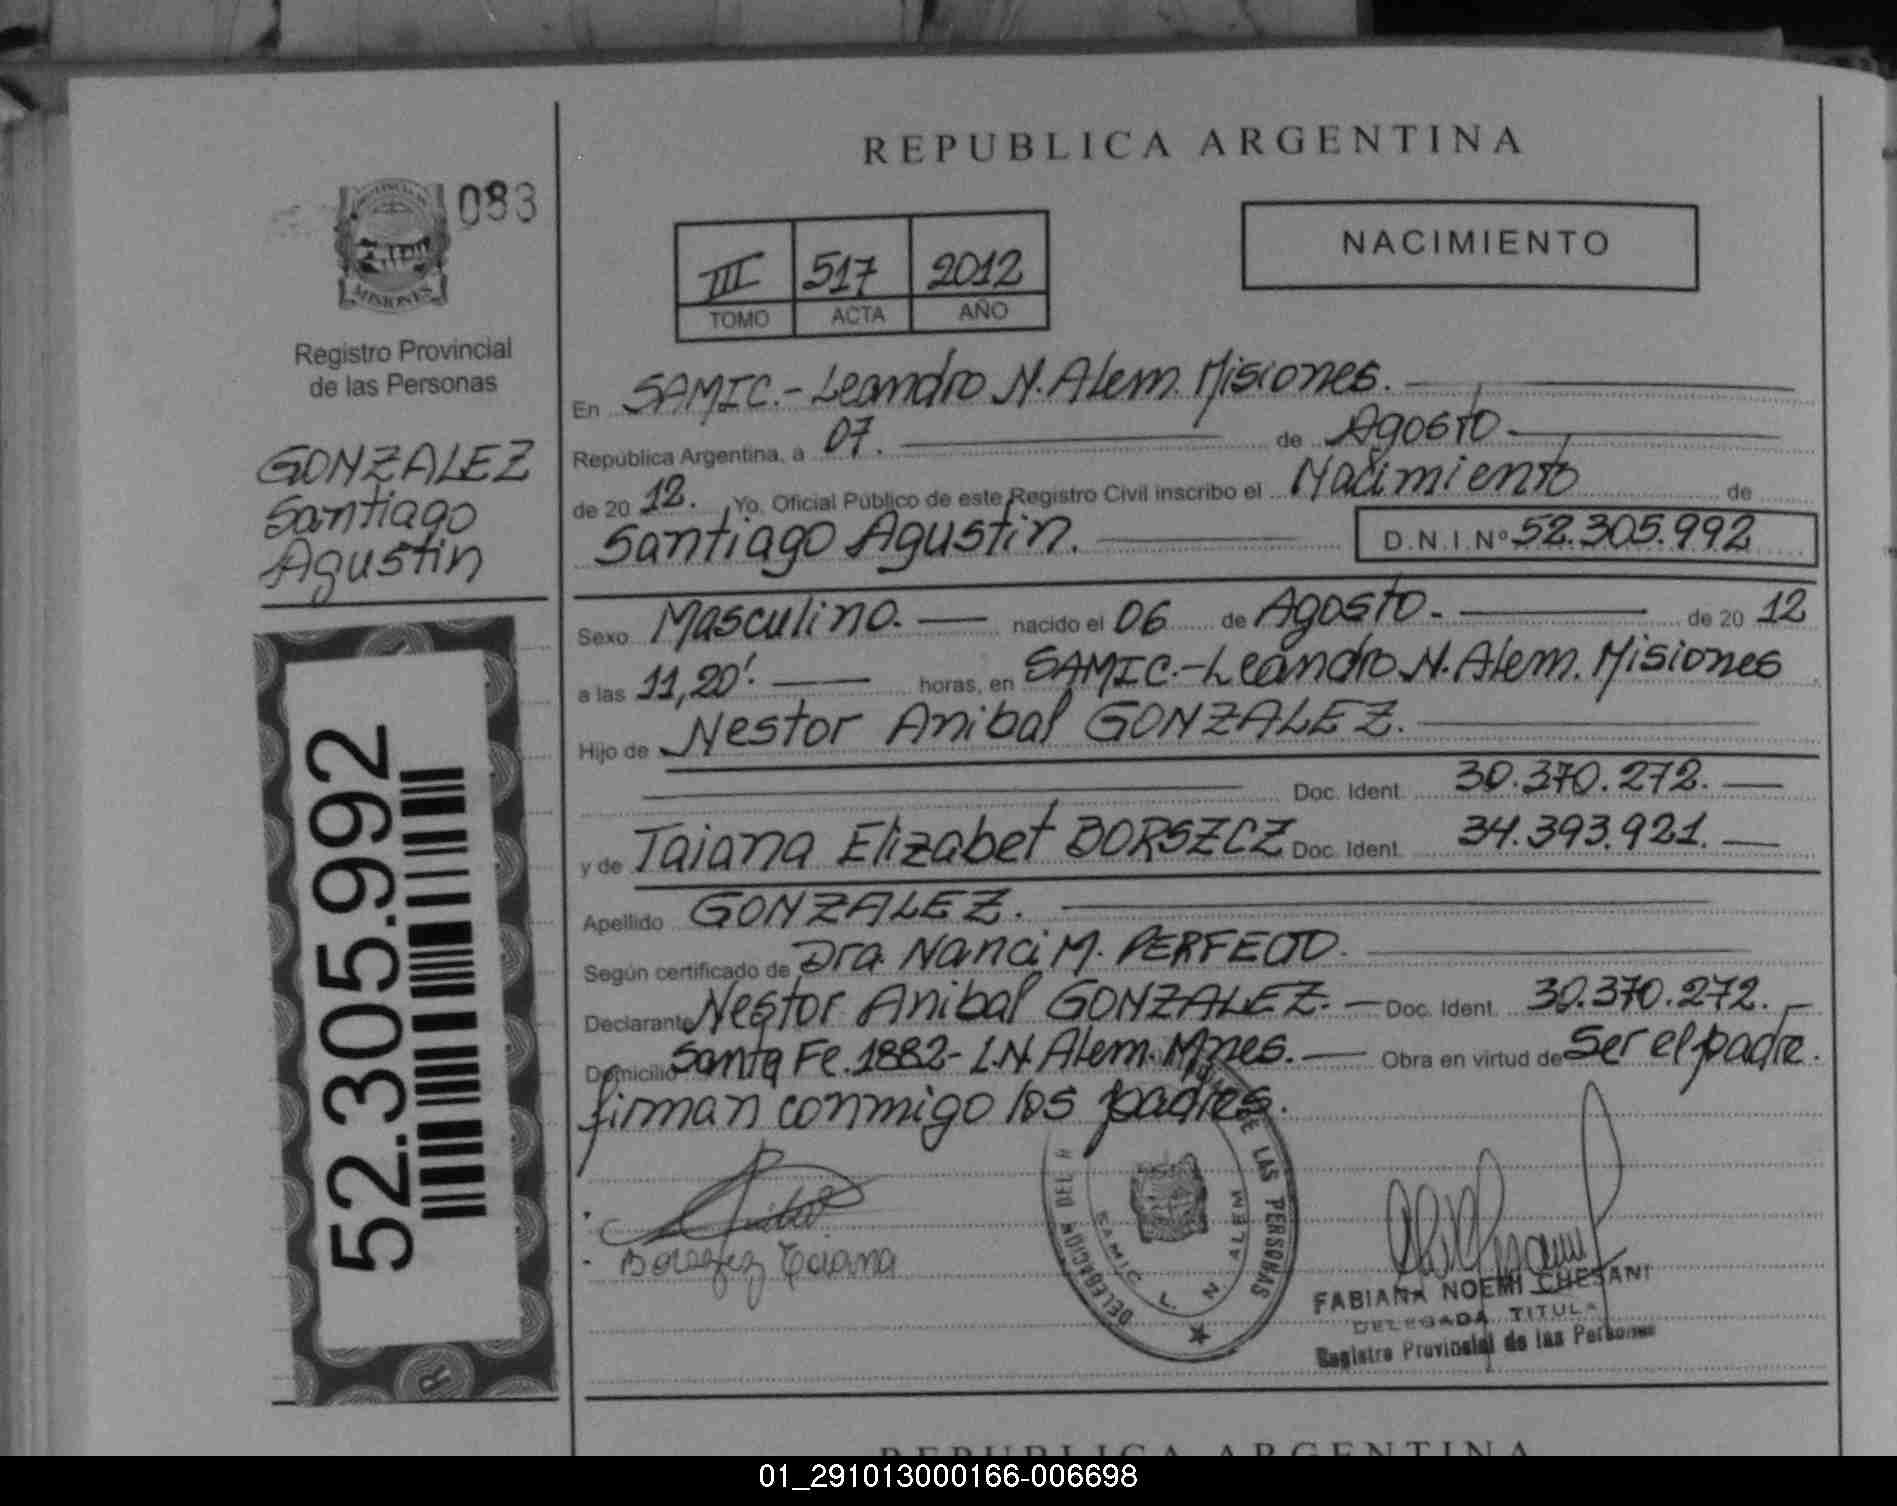 REPUBLICA ARGENTINA
083
MISIONES
Registro Provincial
de las Personas
GONZALEZ
Santiago
Agustin
52.305.992
R
III 517 2012
TOMO ACTA AÑO
NACIMIENTO
En SAMIC.- Leandro N. Alem. Misiones.
República Argentina, a 07. de Agosto
de 20 12. Yo, Oficial Público de este Registro Civil inscribo el Nacimiento de
Santiago Agustin. D.N.I.Nº 52.305.992
Sexo Masculino. nacido el 06 de Agosto. de 20 12
a las 11,20'. horas, en SAMIC.- Leandro N. Alem. Misiones
Hijo de Nestor Anibal GONZALEZ.
Doc. Ident. 30.370.272.
y de Taiana Elizabet BORSZCZ Doc. Ident. 34.393.921.
Apellido GONZALEZ.
Según certificado de Dra. Nanci M. PERFECTO.
Declarante Nestor Anibal GONZALEZ. Doc. Ident. 30.370.272.
Domicilio Santa Fe. 1882- L.N. Alem. Mnes. Obra en virtud de Ser el padre.
firman conmigo los padres.
DELEGACION DEL DE LAS PERSONAS
SAMIC L. N. ALEM
Taiana
FABIANA NOEMI CHESANI
DELEGADA TITULA
Registro Provincial de las Personas
REPUBLICA ARGENTINA
01_291013000166-006698